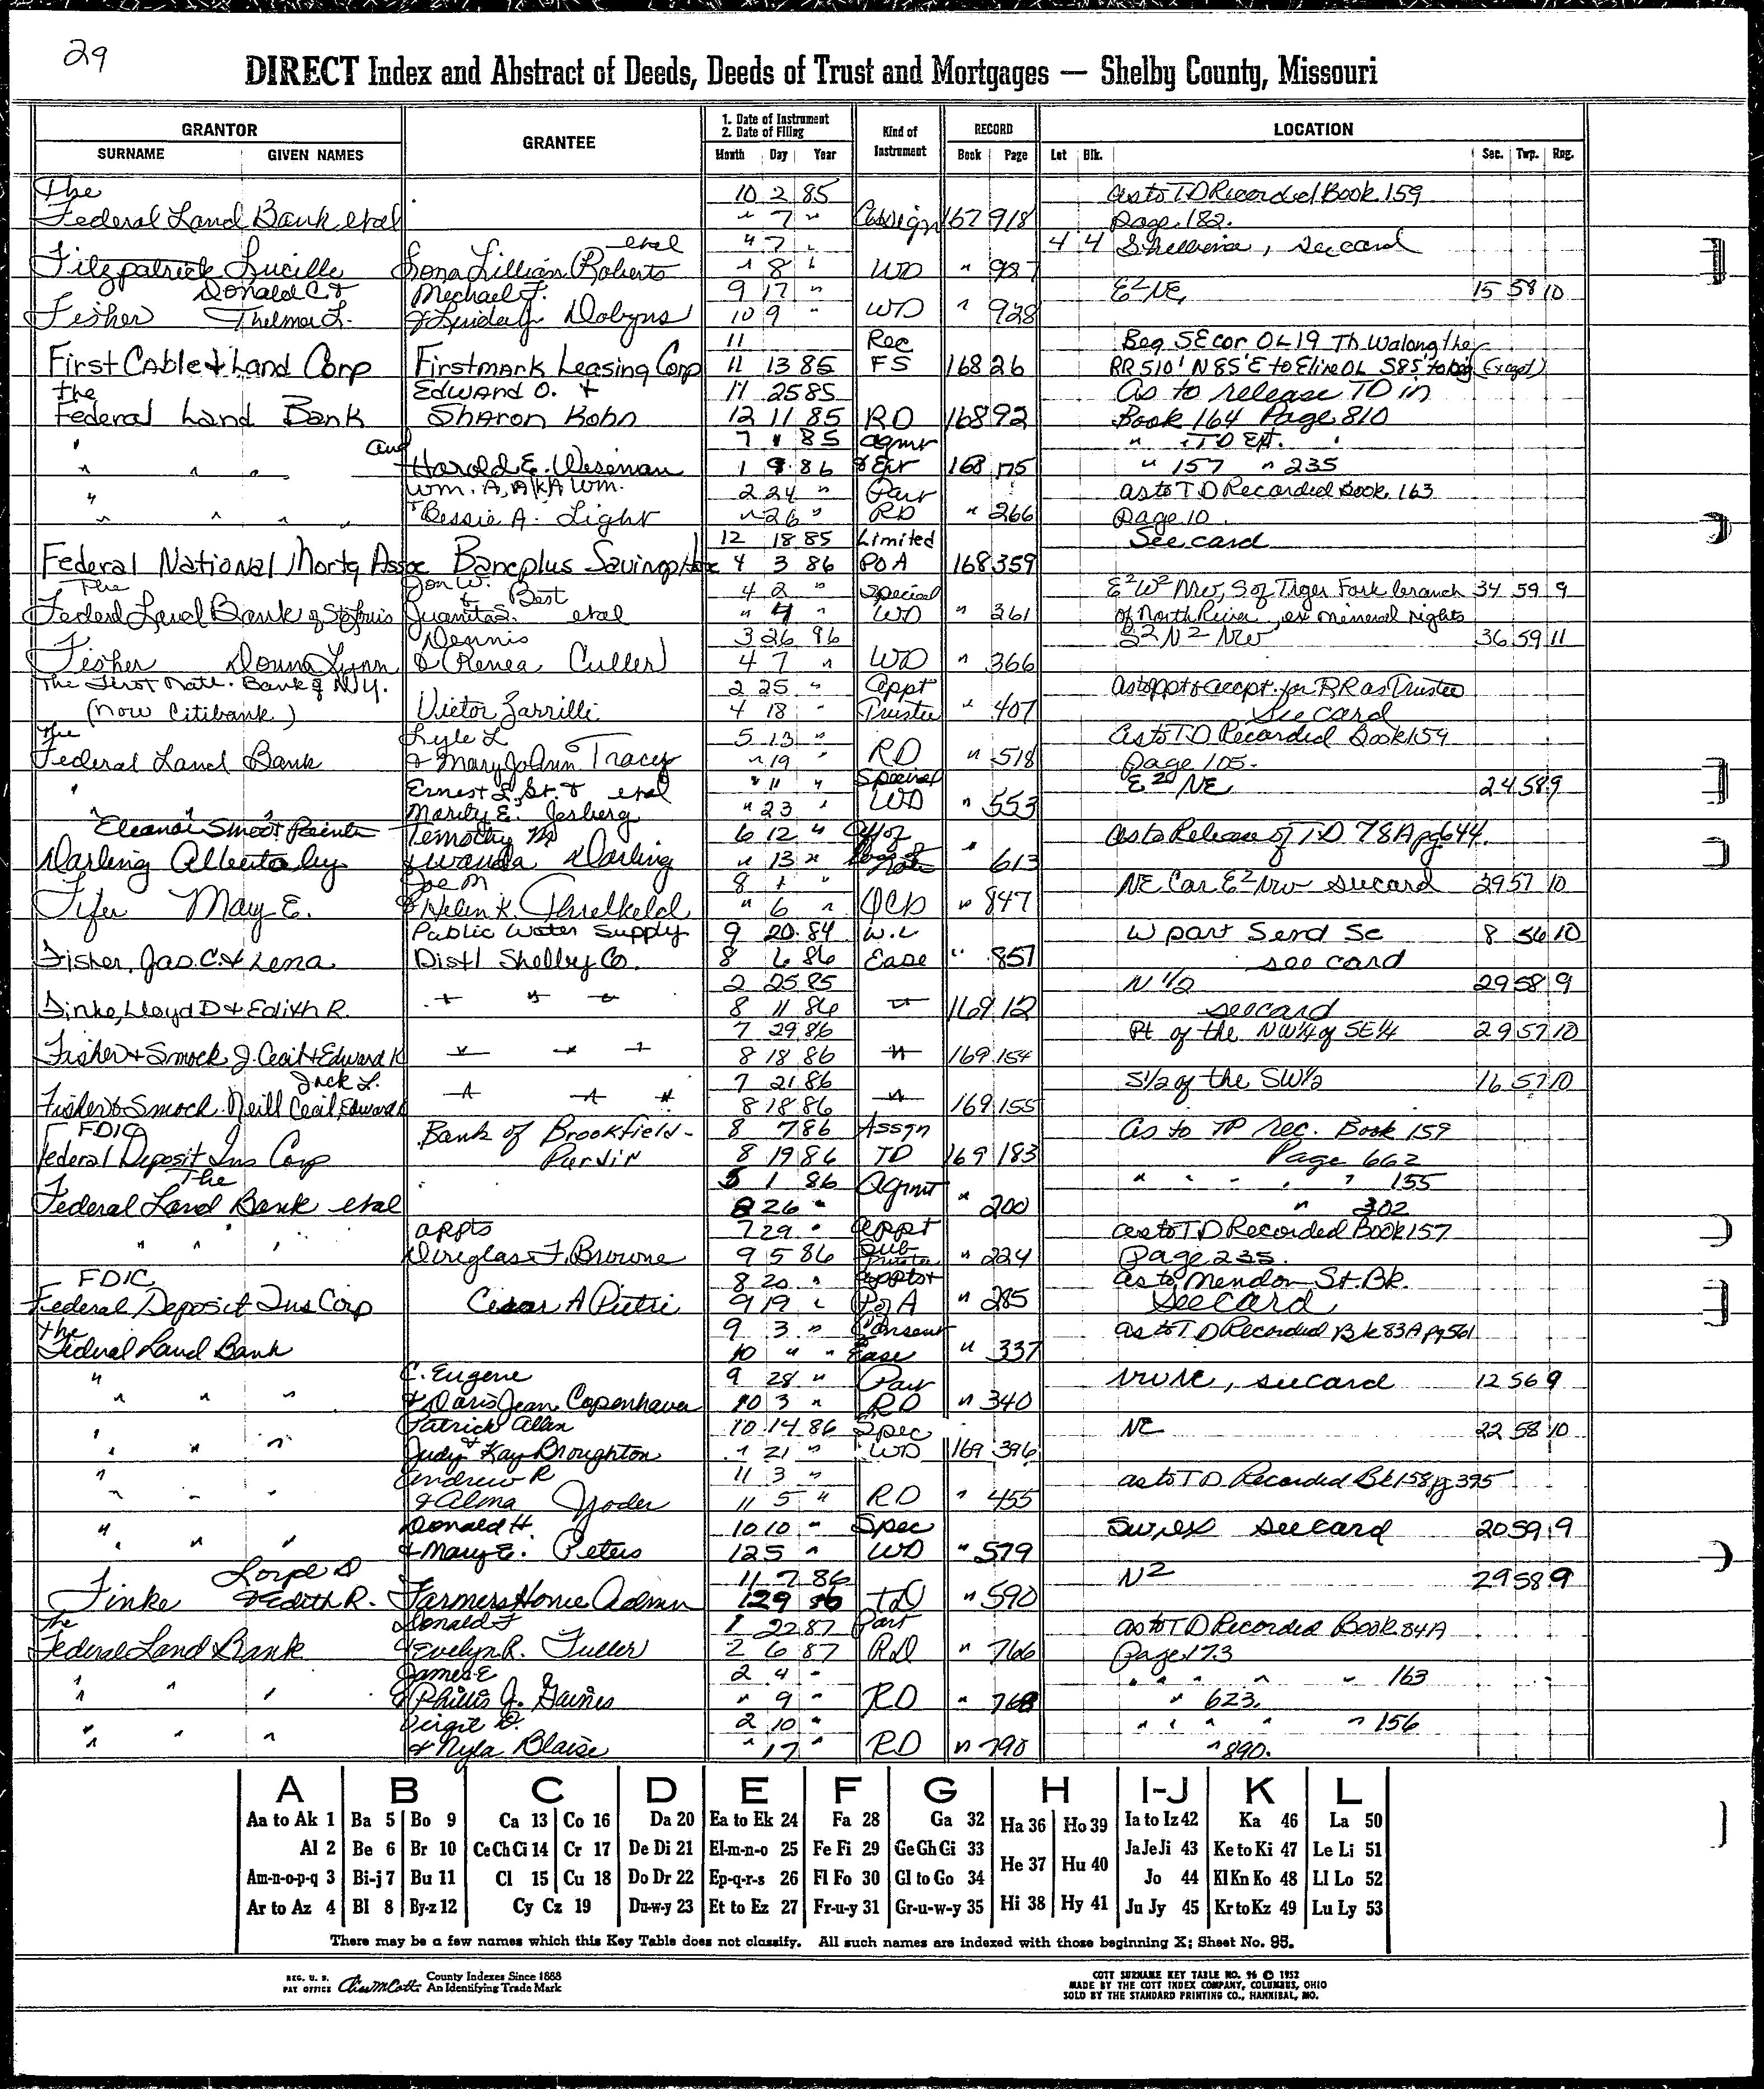 29
DIRECT Index and Abstract of Deeds, Deeds of Trust and Mortgages — Shelby County, Missouri
GRANTOR GRANTEE 1. Date of Instrument 2. Date of Filing Kind of Instrument RECORD LOCATION
SURNAME GIVEN NAMES Month Day Year Book Page Lot Blk. Sec. Twp. Rng.
The 10 2 85 as to TD Recorded Book 159
Federal Land Bank etal " 7 " Assign 167 918 page 182.
etal " 7 4 4 Shelbina, see card
Fitzpatrick Lucille Lillian Roberts " 8 WD "
Donald C. & Michael F. 9 17 " E2 NE, 15 58 10
Fisher Thelma L. & Linda J. Dobyns 10 9 " WD " 928
11 Rec Beg SE cor OL 19 Th W along the
First Cable & Land Corp Firstmark Leasing Corp 11 13 85 FS 168 26 RR 510' N 85' E to E line OL S 85' to beg
The Edward O. & 11 25 85 As to release TD in
Federal Land Bank Sharon Kohn 12 11 85 RD 168 92 Book 164 Page 810
" and 7 1 85 agmt " TD Ext. "
" " " Harold E. Wiseman 1 9 86 & Ext 168 175 " 157 " 235
" Wm. A, A/K/A Wm. 2 24 " Part as to TD Recorded Book 163
" " " " Bessie A. Light " 26 " RD " 266 page 10
12 18 85 Limited See card
Federal National Mortg Assoc Bancplus Savings 4 3 86 POA 168 359
The Jon W. & Best 4 2 " Special E2 W2 NW, S of Tiger Fork branch 34 59 9
Federal Land Bank of St Louis Juanita S. etal " 4 " WD " 361 of North River, ex mineral rights
Dennis 3 26 86 S2 N2 NW 36 59 11
Fisher Donna Lynn & Renea Culler 4 7 " WD " 366
The First Natl. Bank of N.Y. 2 25 " Appt as to appt & accept. for RR as Trustee
(now Citibank) Victor Zarrilli 4 18 " Trustee " 407 see card
The Lyle L 5 13 " as to TD Recorded Book 159
Federal Land Bank & Mary JoAnn Tracy " 19 " RD " 518 page 105.
" Ernest L, Sr. & etal " 11 " Special E2 NE 24 58 9
" " " Marily E. Jesberg " 23 " WD " 553
Eleanor Smoot Painter Timothy M 6 12 " Aff of as to Release of TD 78A pg 644.
Darling Alberta by & Wanda Darling " 13 " Loss of Note " 613
Joe M 8 1 " NE Cor E2 NW see card 29 57 10
Fifer Mary E. & Helen K. Threlkeld " 6 " QCD " 847
Public Water Supply 9 20 84 W.L W part S end SE 8 56 10
Fisher, Jas. C. & Lena Dist 1 Shelby Co. 8 6 86 Ease " 857 see card
2 25 85 N 1/2 29 58 9
Finke, Lloyd D & Edith R. " " " 8 11 86 " 169 12 see card
7 29 86 Pt of the NW 1/4 of SE 1/4 29 57 10
Fisher & Smock J. Cecil & Edward K " " " 8 18 86 " 169 154
Jack L. 7 21 86 S 1/2 of the SW 1/2 16 57 10
Fisher & Smock. Neill Cecil, Edward " " " 8 18 86 " 169 155
FDIC Bank of Brookfield- 8 7 86 Assgn As to TD rec. Book 159
Federal Deposit Ins Corp Purdin 8 19 86 TD 169 183 Page 662
The 5 1 86 " " " " 155
Federal Land Bank etal 8 26 " Agmt " 200 " 302
appts 7 29 " Appt as to TD Recorded Book 157
" " " Douglas F. Browne 9 5 86 Sub Trustee " 224 Page 235.
FDIC 8 20 " Appt of as to Mendon St. Bk.
Federal Deposit Ins Corp Cesar A Pietri 9 19 " PoA " 285 See card
The 9 3 " Consent as to TD Recorded Bk 83A pg 561
Federal Land Bank 10 " " Ease " 337
" C. Eugene 9 28 " Part NWNE, see card 12 56 9
" " " & Doris Jean Copenhaver 10 3 " RD " 340
" Patrick Allen 10 14 86 Spec NE 22 58 10
" " " & Judy Kay Broughton " 21 " WD 169 396
" Andrew R 11 3 " as to TD Recorded Bk 158 pg 395
" " " & Alma Yoder 11 5 " RD " 455
" Donald H. 10 10 " Spec SW, ex see card 20 59 9
" " " & Mary E. Peters 12 5 " WD " 579
11 7 86 N2 29 58 9
Finke & Edith R. Farmers Home Admn 12 9 86 TD " 590
The Donald F 1 22 87 Part as to TD Recorded Book 84A
Federal Land Bank & Evelyn R. Fuller 2 6 87 RD " 766 Page 173
" James E 2 4 " " " " " " 163
" " " & Phillis J. Gaines " 9 " RD " 768 " 623.
" Virgil D. 2 10 " " " " " " 156
" " " & Nyla Blaise " 17 " RD " 790 " 890.
A B C D E F G H I-J K L
Aa to Ak 1 Ba 5 Bo 9 Ca 13 Co 16 Da 20 Ea to Ek 24 Fa 28 Ga 32 Ha 36 Ho 39 Ia to Iz 42 Ka 46 La 50
Al 2 Be 6 Br 10 Ce Ch Ci 14 Cr 17 De Di 21 El-m-n-o 25 Fe Fi 29 Ge Gh Gi 33 He 37 Hu 40 Ja Je Ji 43 Ke to Ki 47 Le Li 51
Am-n-o-p-q 3 Bi-j 7 Bu 11 Cl 15 Cu 18 Do Dr 22 Ep-q-r-s 26 Fl Fo 30 Gl to Go 34 Jo 44 Kl Kn Ko 48 Ll Lo 52
Ar to Az 4 Bl 8 By-z 12 Cy Cz 19 Du-w-y 23 Et to Ez 27 Fr-u-y 31 Gr-u-w-y 35 Hi 38 Hy 41 Ju Jy 45 Kr to Kz 49 Lu Ly 53
There may be a few names which this Key Table does not classify. All such names are indexed with those beginning X; Sheet No. 95.
REG. U. S. PAT OFFICE County Indexes Since 1888 An Identifying Trade Mark
COTT SURNAME KEY TABLE NO. 96 © 1952
MADE BY THE COTT INDEX COMPANY, COLUMBUS, OHIO
SOLD BY THE STANDARD PRINTING CO., HANNIBAL, MO.